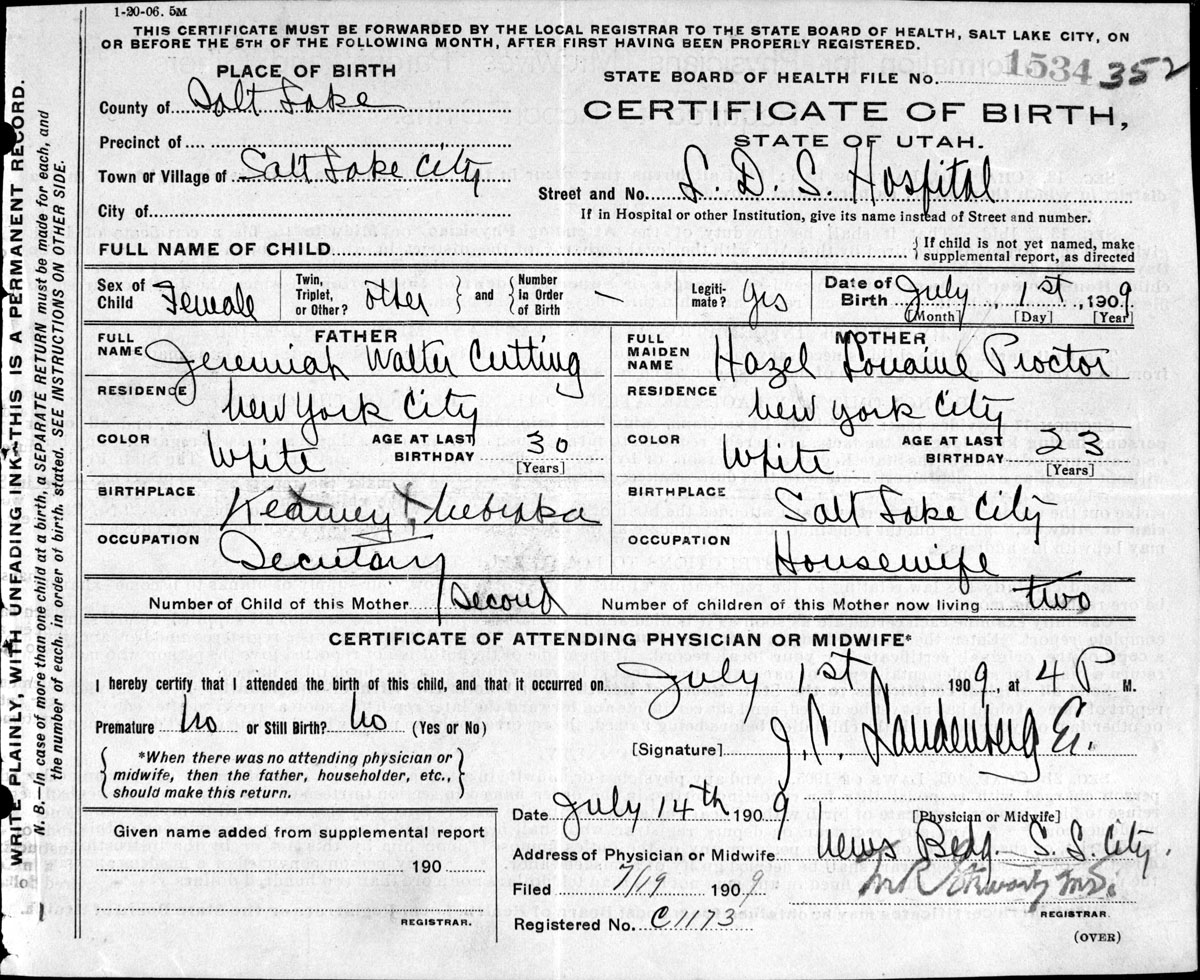 1-20-06. 5M
THIS CERTIFICATE MUST BE FORWARDED BY THE LOCAL REGISTRAR TO THE STATE BOARD OF HEALTH, SALT LAKE CITY, ON
OR BEFORE THE 5TH OF THE FOLLOWING MONTH, AFTER FIRST HAVING BEEN PROPERLY REGISTERED.
WRITE PLAINLY, WITH UNFADING INK; THIS IS A PERMANENT RECORD.
N. B.—In case of more than one child at a birth, a SEPARATE RETURN must be made for each, and
the number of each, in order of birth, stated. SEE INSTRUCTIONS ON OTHER SIDE.
PLACE OF BIRTH
County of Salt Lake
Precinct of
Town or Village of Salt Lake City
City of
STATE BOARD OF HEALTH FILE No. 1534 352
CERTIFICATE OF BIRTH,
STATE OF UTAH.
Street and No. L. D. S. Hospital
If in Hospital or other Institution, give its name instead of Street and number.
FULL NAME OF CHILD { If child is not yet named, make
supplemental report, as directed
Sex of Child Female
Twin, Triplet, or Other? other } and { Number in Order of Birth —
Legiti-mate? yes
Date of Birth July 1st, 1909
[Month] [Day] [Year]
FATHER
FULL NAME Jeremiah Walter Cutting
RESIDENCE New York City
COLOR White AGE AT LAST BIRTHDAY 30 [Years]
BIRTHPLACE Kearney, Nebraska
OCCUPATION Secretary
MOTHER
FULL MAIDEN NAME Hazel Louaine Proctor
RESIDENCE New York City
COLOR White AGE AT LAST BIRTHDAY 23 [Years]
BIRTHPLACE Salt Lake City
OCCUPATION Housewife
Number of Child of this Mother Second Number of children of this Mother now living two
CERTIFICATE OF ATTENDING PHYSICIAN OR MIDWIFE*
I hereby certify that I attended the birth of this child, and that it occurred on July 1st 1909, at 4 P M.
Premature No or Still Birth? No (Yes or No)
{ *When there was no attending physician or
midwife, then the father, householder, etc.,
should make this return. }
[Signature]
[Physician or Midwife]
Given name added from supplemental report
190
REGISTRAR.
Date July 14th 1909
Address of Physician or Midwife News Bldg. S. L. City.
Filed 7/19 1909
Registered No. C1173
REGISTRAR.
(OVER)